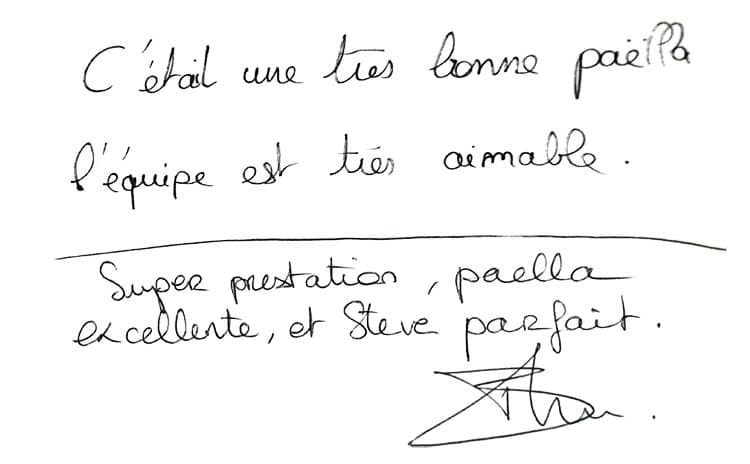 C'était une très bonne paëlla
l'équipe est très aimable.
Super prestation, paella
excellente, et Steve parfait.